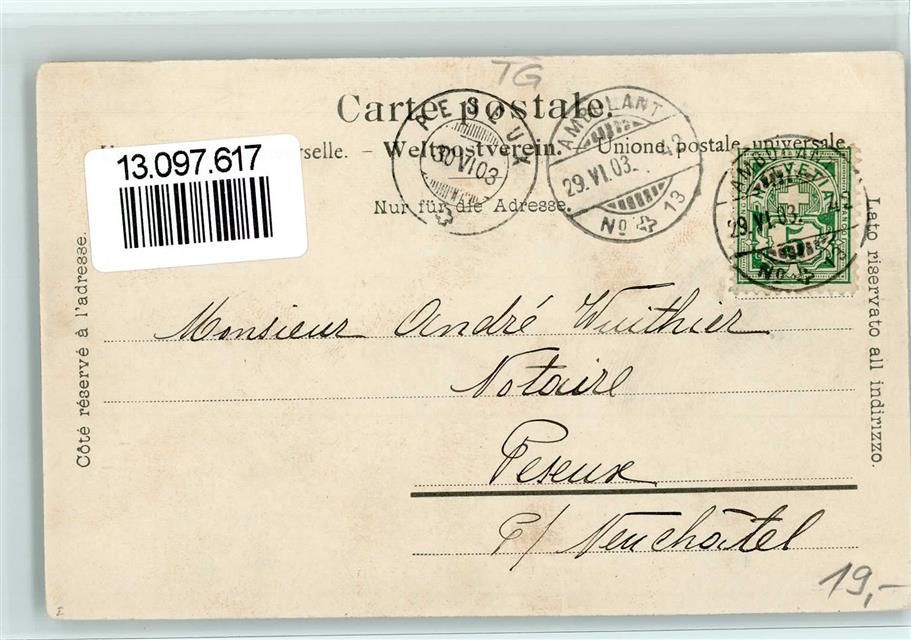 TG
Carte postale.
rselle. – Weltpostverein. – Unione postale universale
Nur für die Adresse.
13.097.617
PESEUX
30 VI 03
AMBULANT
29. VI. 03.
No 13
29. VI. 03.
No
Côté réservé à l'adresse.
Lato riservato all indirizzo.
Monsieur André Wuithier
Notaire
Peseux
p/ Neuchâtel
19,-